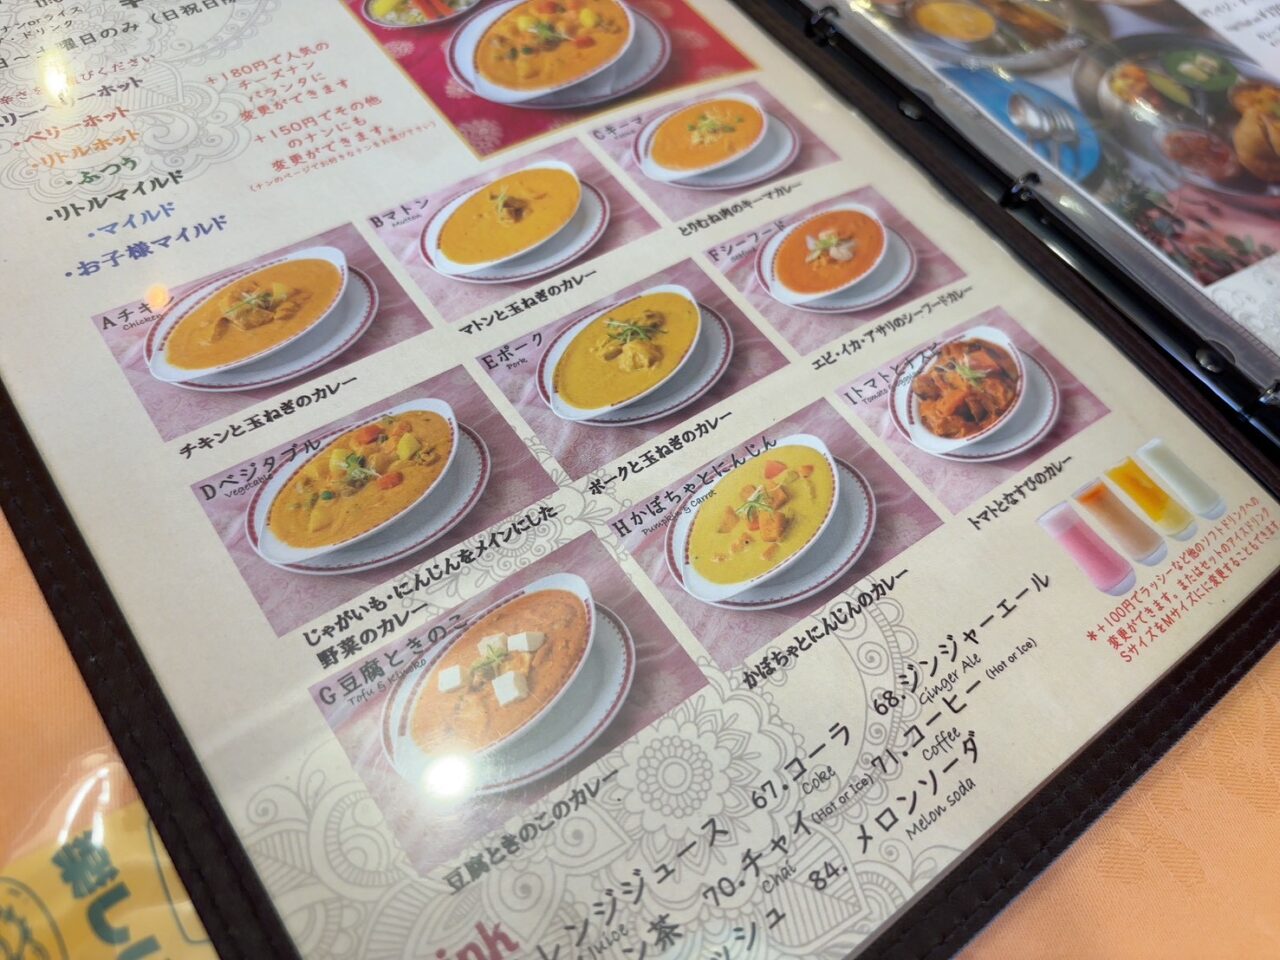 ナンorライス
ドリンク
曜日のみ（日祝日
ください
ベリーホット
・ベリーホット
・リトルホット
・ふつう
・リトルマイルド
・マイルド
・お子様マイルド
+180円で人気の
チーズナン
バランタに
変更ができます
+150円でその他
のナンにも
変更ができます。
Aチキン
Chicken
チキンと玉ねぎのカレー
Bマトン
Mutton
マトンと玉ねぎのカレー
Cキーマ
とりむね肉のキーマカレー
Dベジタブル
vegetable
じゃがいも・にんじんをメインにした
野菜のカレー
Eポーク
Pork
ポークと玉ねぎのカレー
Fシーフード
エビ・イカ・アサリのシーフードカレー
G豆腐ときのこ
Tofu & Kinoko
豆腐ときのこのカレー
Hかぼちゃとにんじん
Pumpkin & Carrot
かぼちゃとにんじんのカレー
Iトマトとナスビ
トマトとなすびのカレー
*+100円でラッシーなど他のソフトドリンクへの
変更ができます。またはセットのアイスドリンク
SサイズをMサイズにに変更することもできます
レンジジュース
Juice
67.コーラ
Coke
68.ジンジャーエール
Ginger Ale
ン茶
70.チャイ(Hot or Ice)
Chai
71.コーヒー (Hot or Ice)
Coffee
ッシュ
84. メロンソーダ
Melon soda
ink
楽し